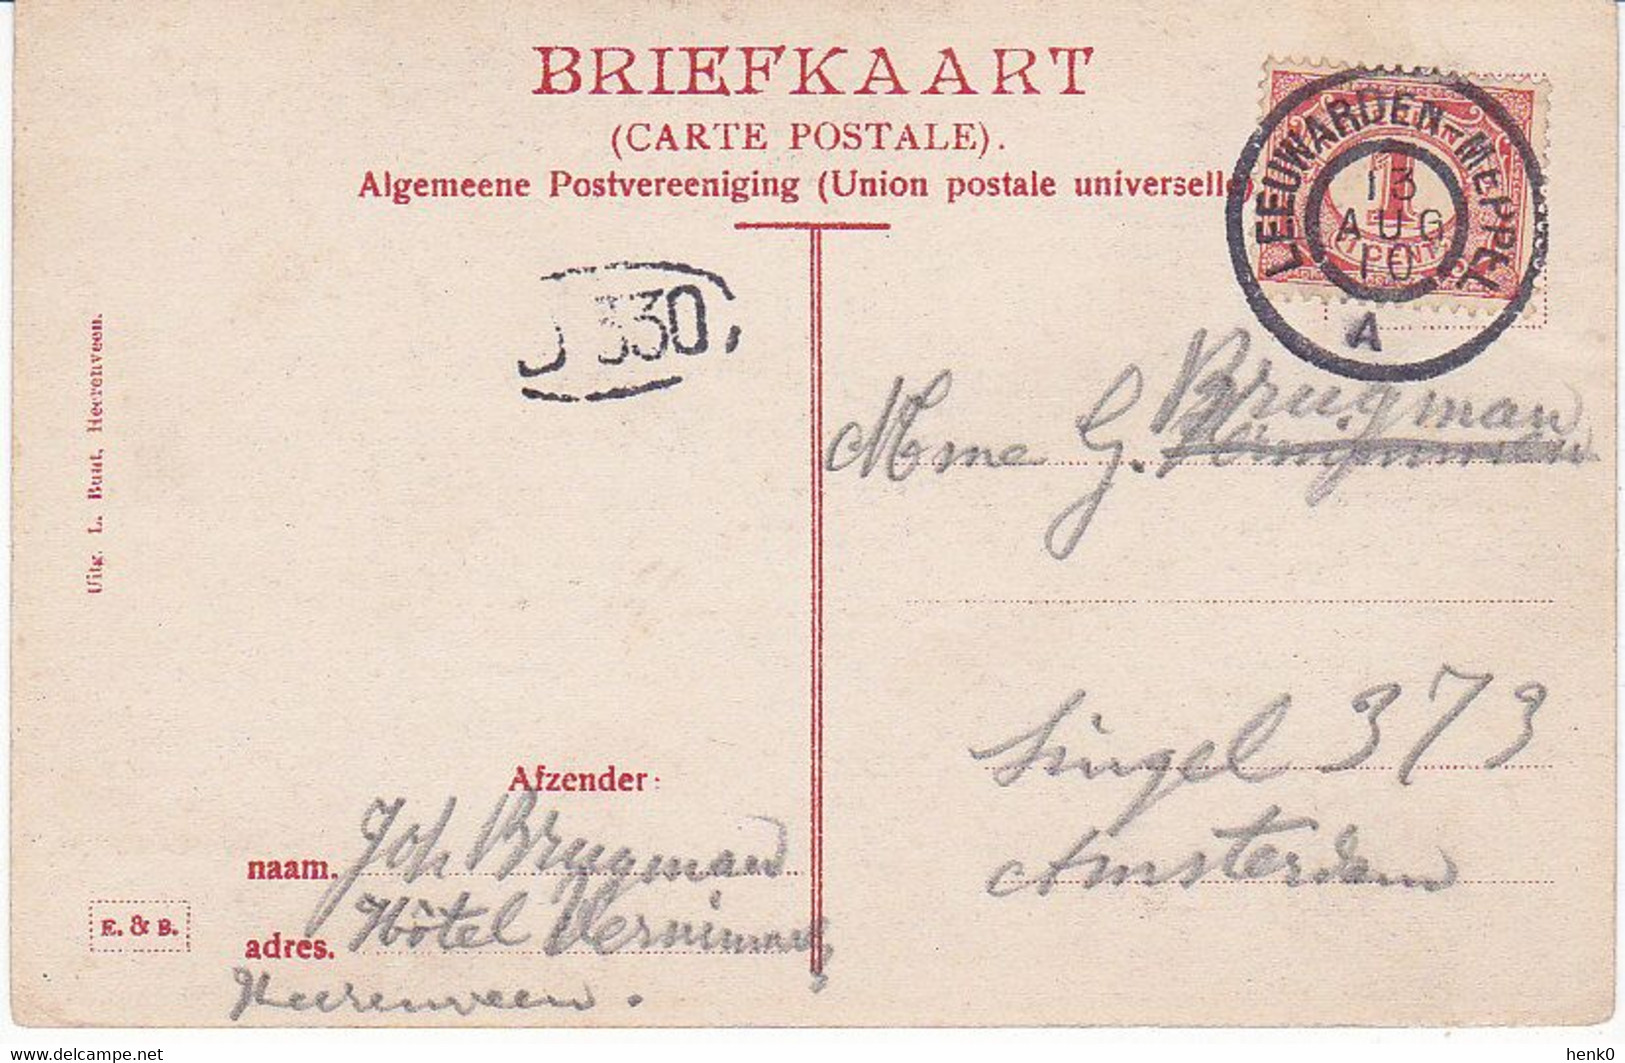 BRIEFKAART
(CARTE POSTALE).
Algemeene Postvereeniging (Union postale universelle)
LEEUWARDEN-MEPPEL
13
AUG
10
A
1
1 CENT
330
Uitg. L. Buut, Heerenveen.
Mme G. Brugman
Singel 373
Amsterdam
Afzender:
naam. Joh Brugman
adres. Hôtel
Heerenveen.
E. & B.
www.delcampe.net
henk0